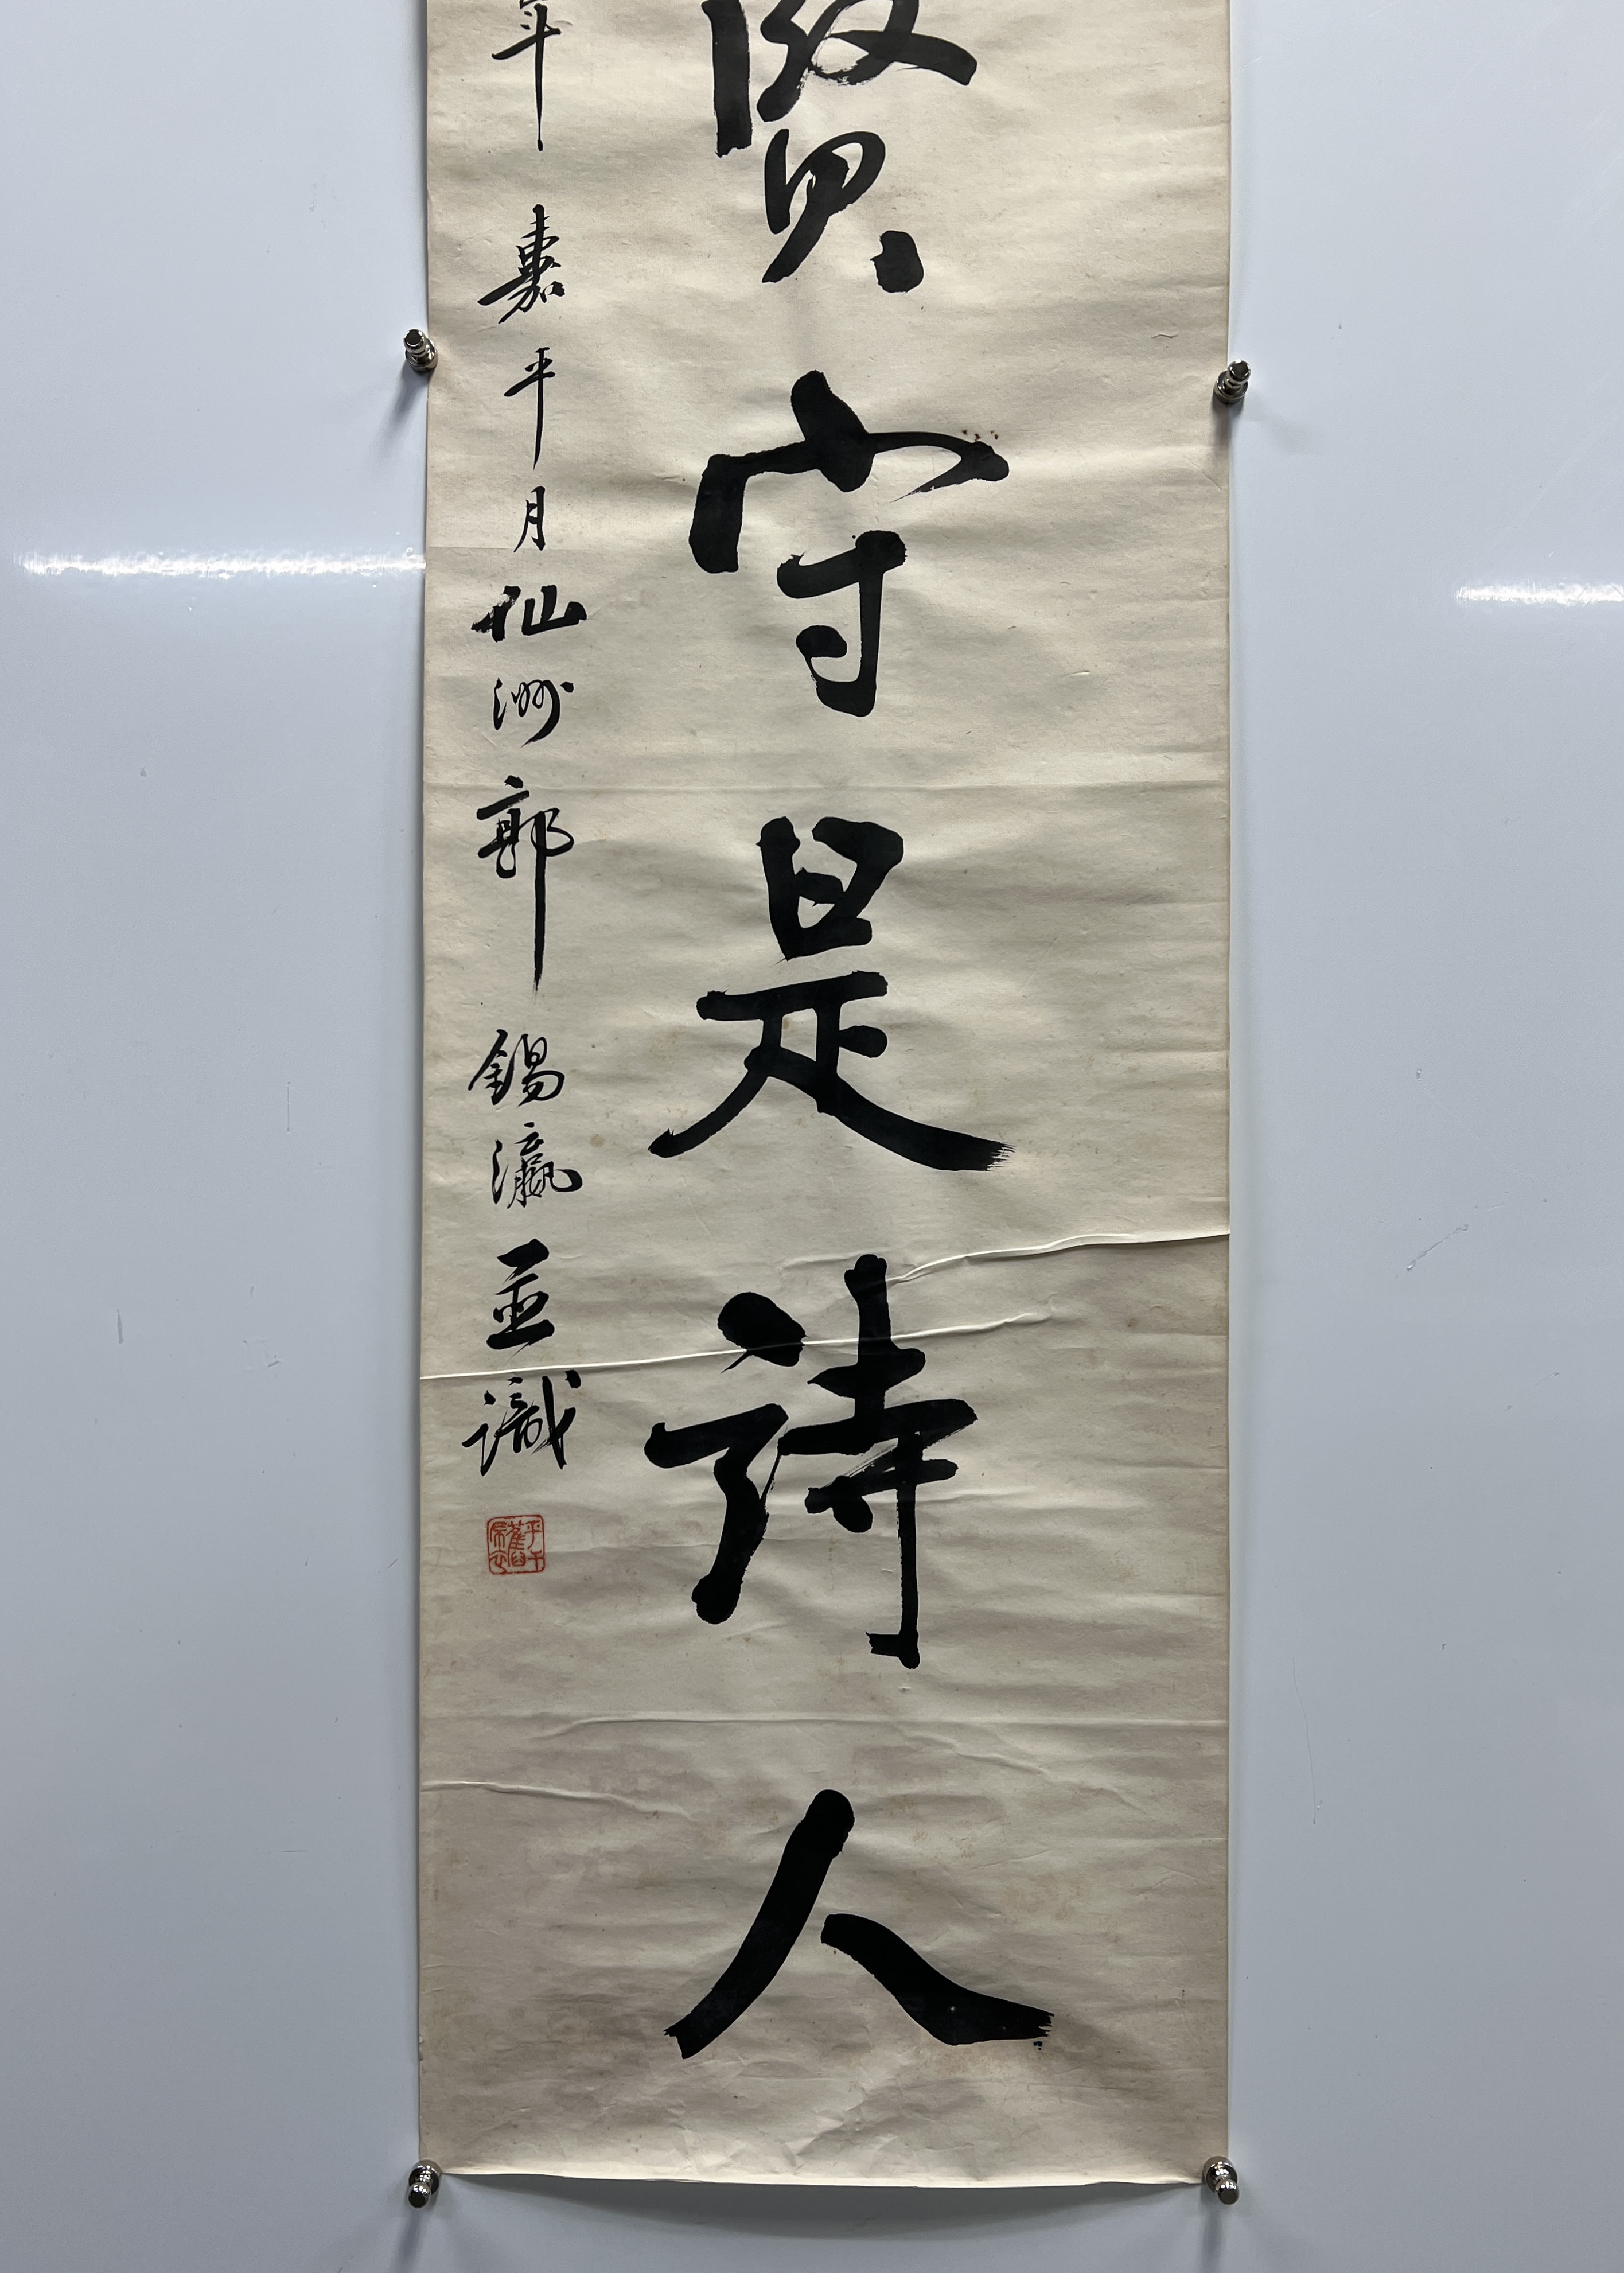 賢守是詩人
年嘉平月仙洲郭錫瀛並識